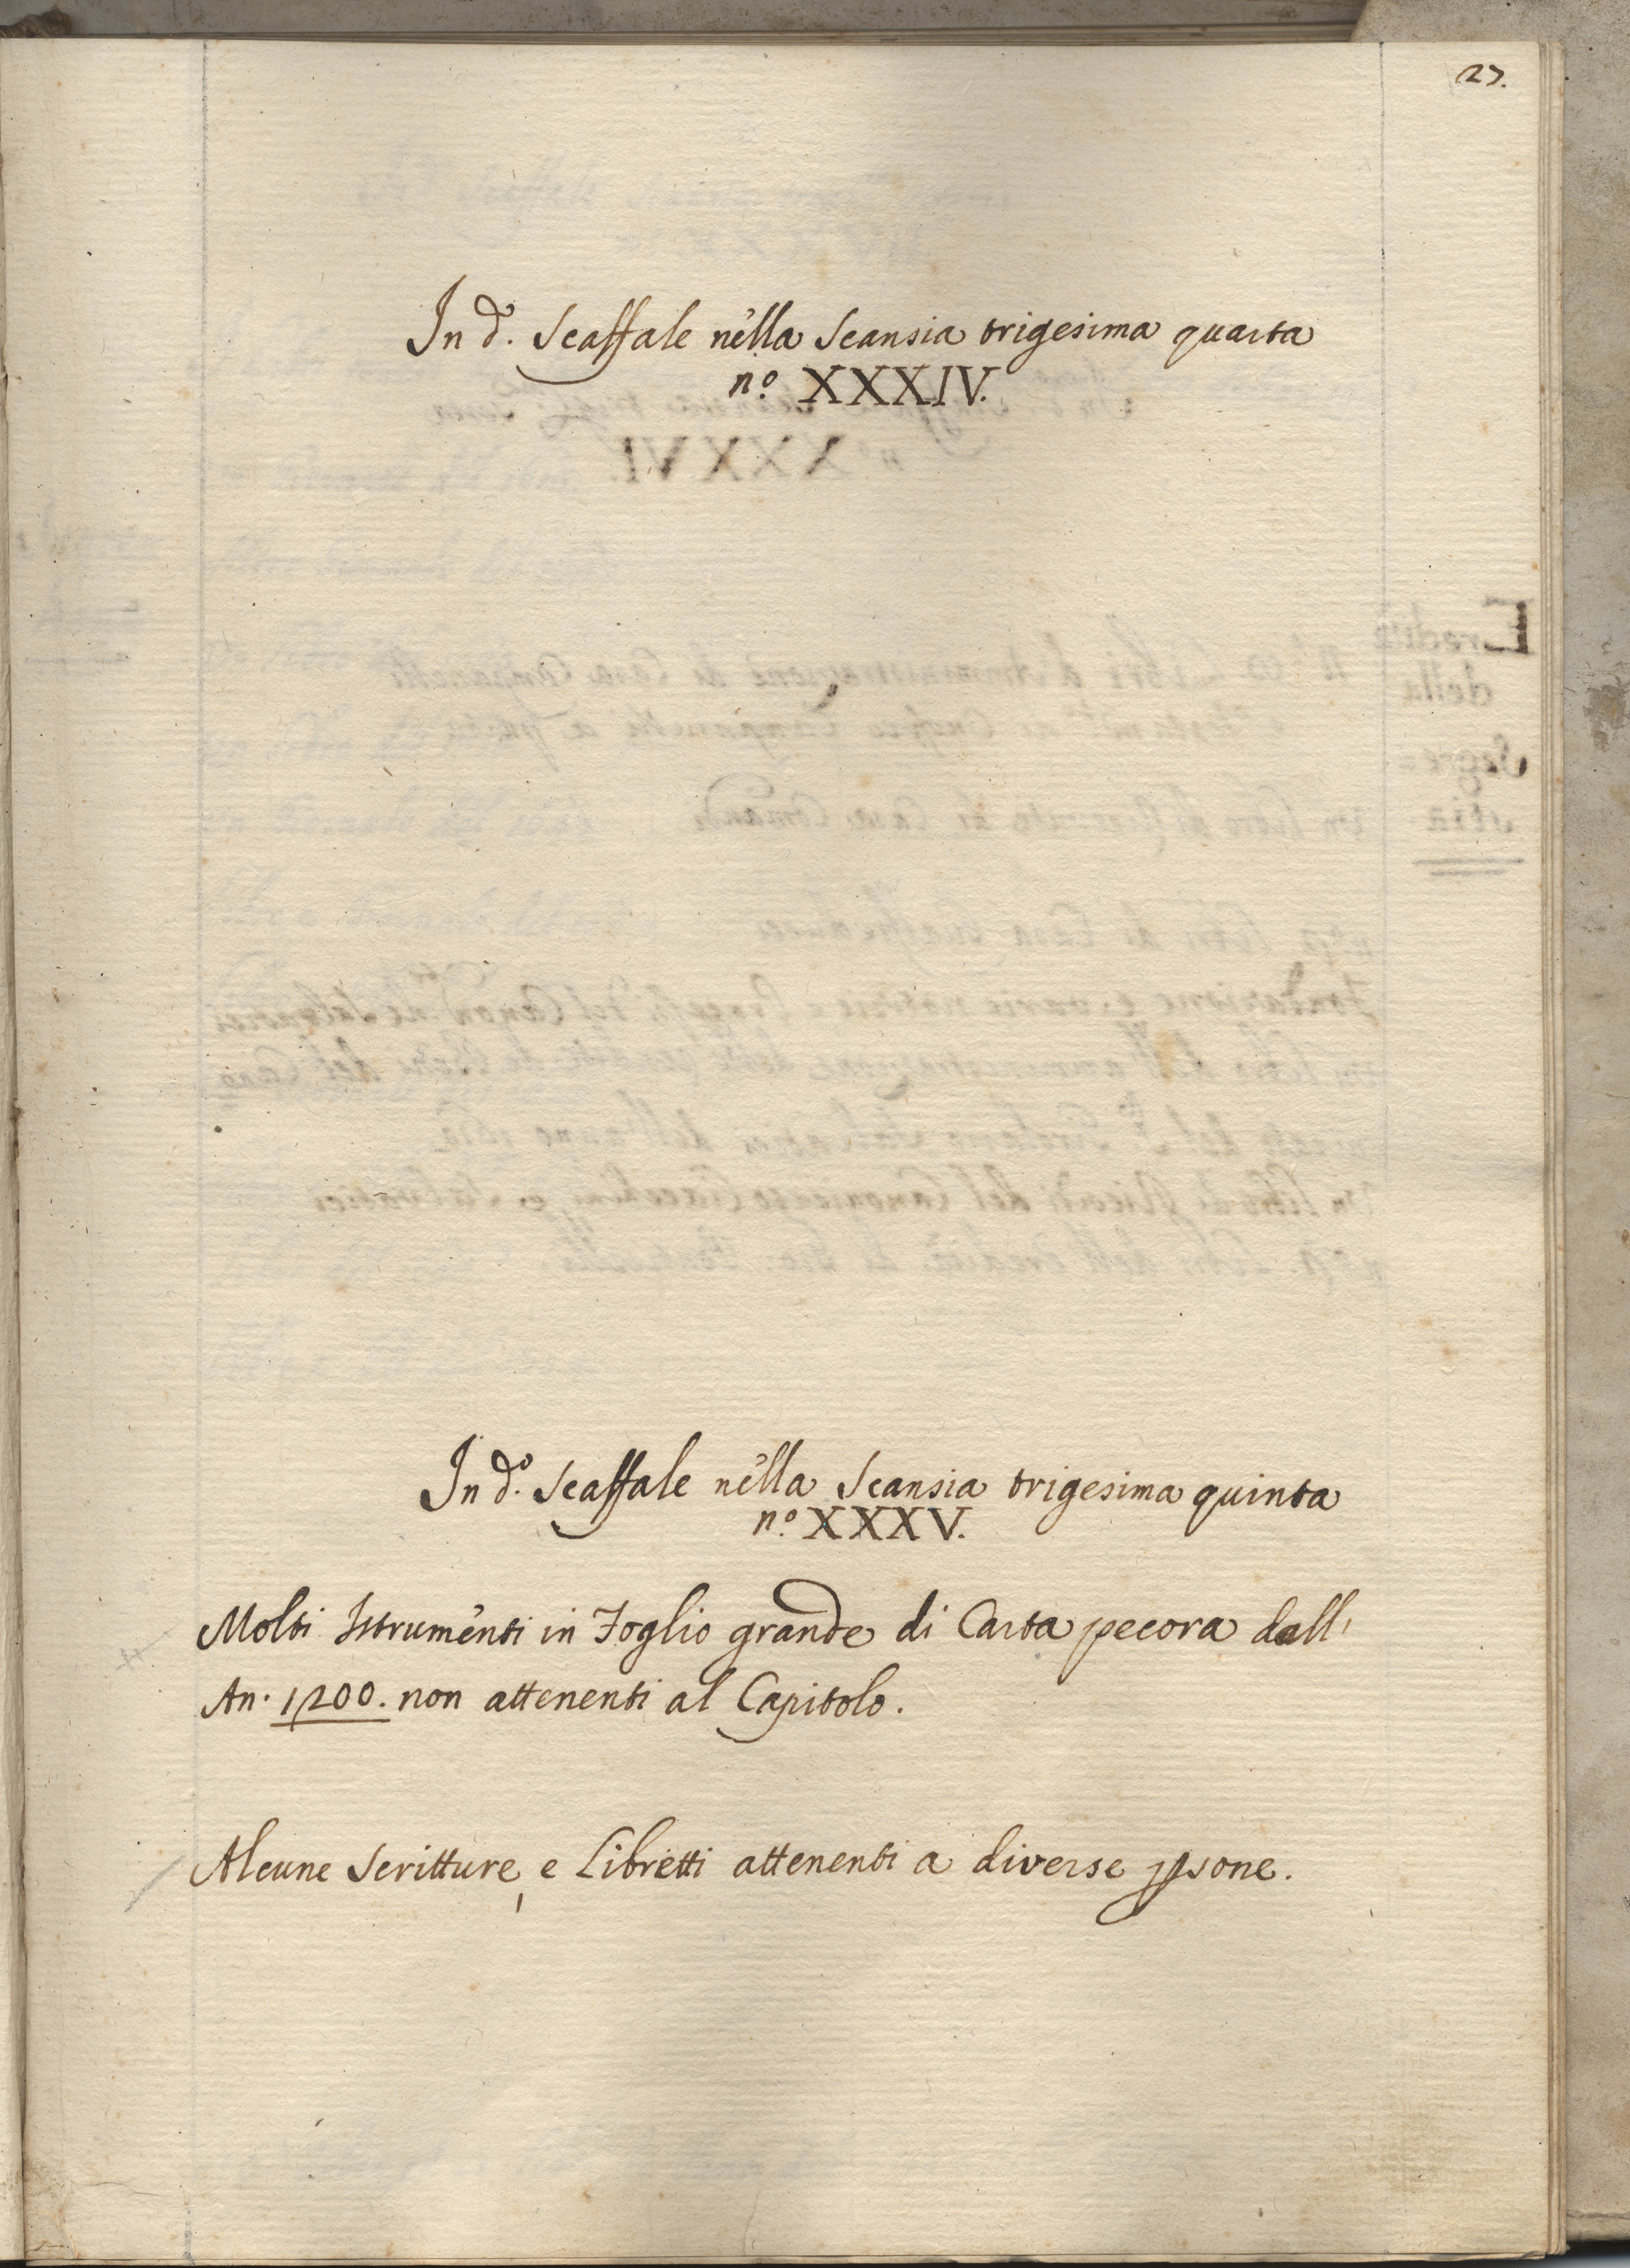 27.
In d.º Scaffale nella Scansia trigesima quarta
n.º XXXIV.
In d.º Scaffale nella Scansia trigesima quinta
n.º XXXV.
Molti Istrumenti in Foglio grande di Carta pecora dall'
An. 1200. non attenenti al Capitolo.
Alcune Scritture, e Libretti attenenti a diverse ꝑsone.